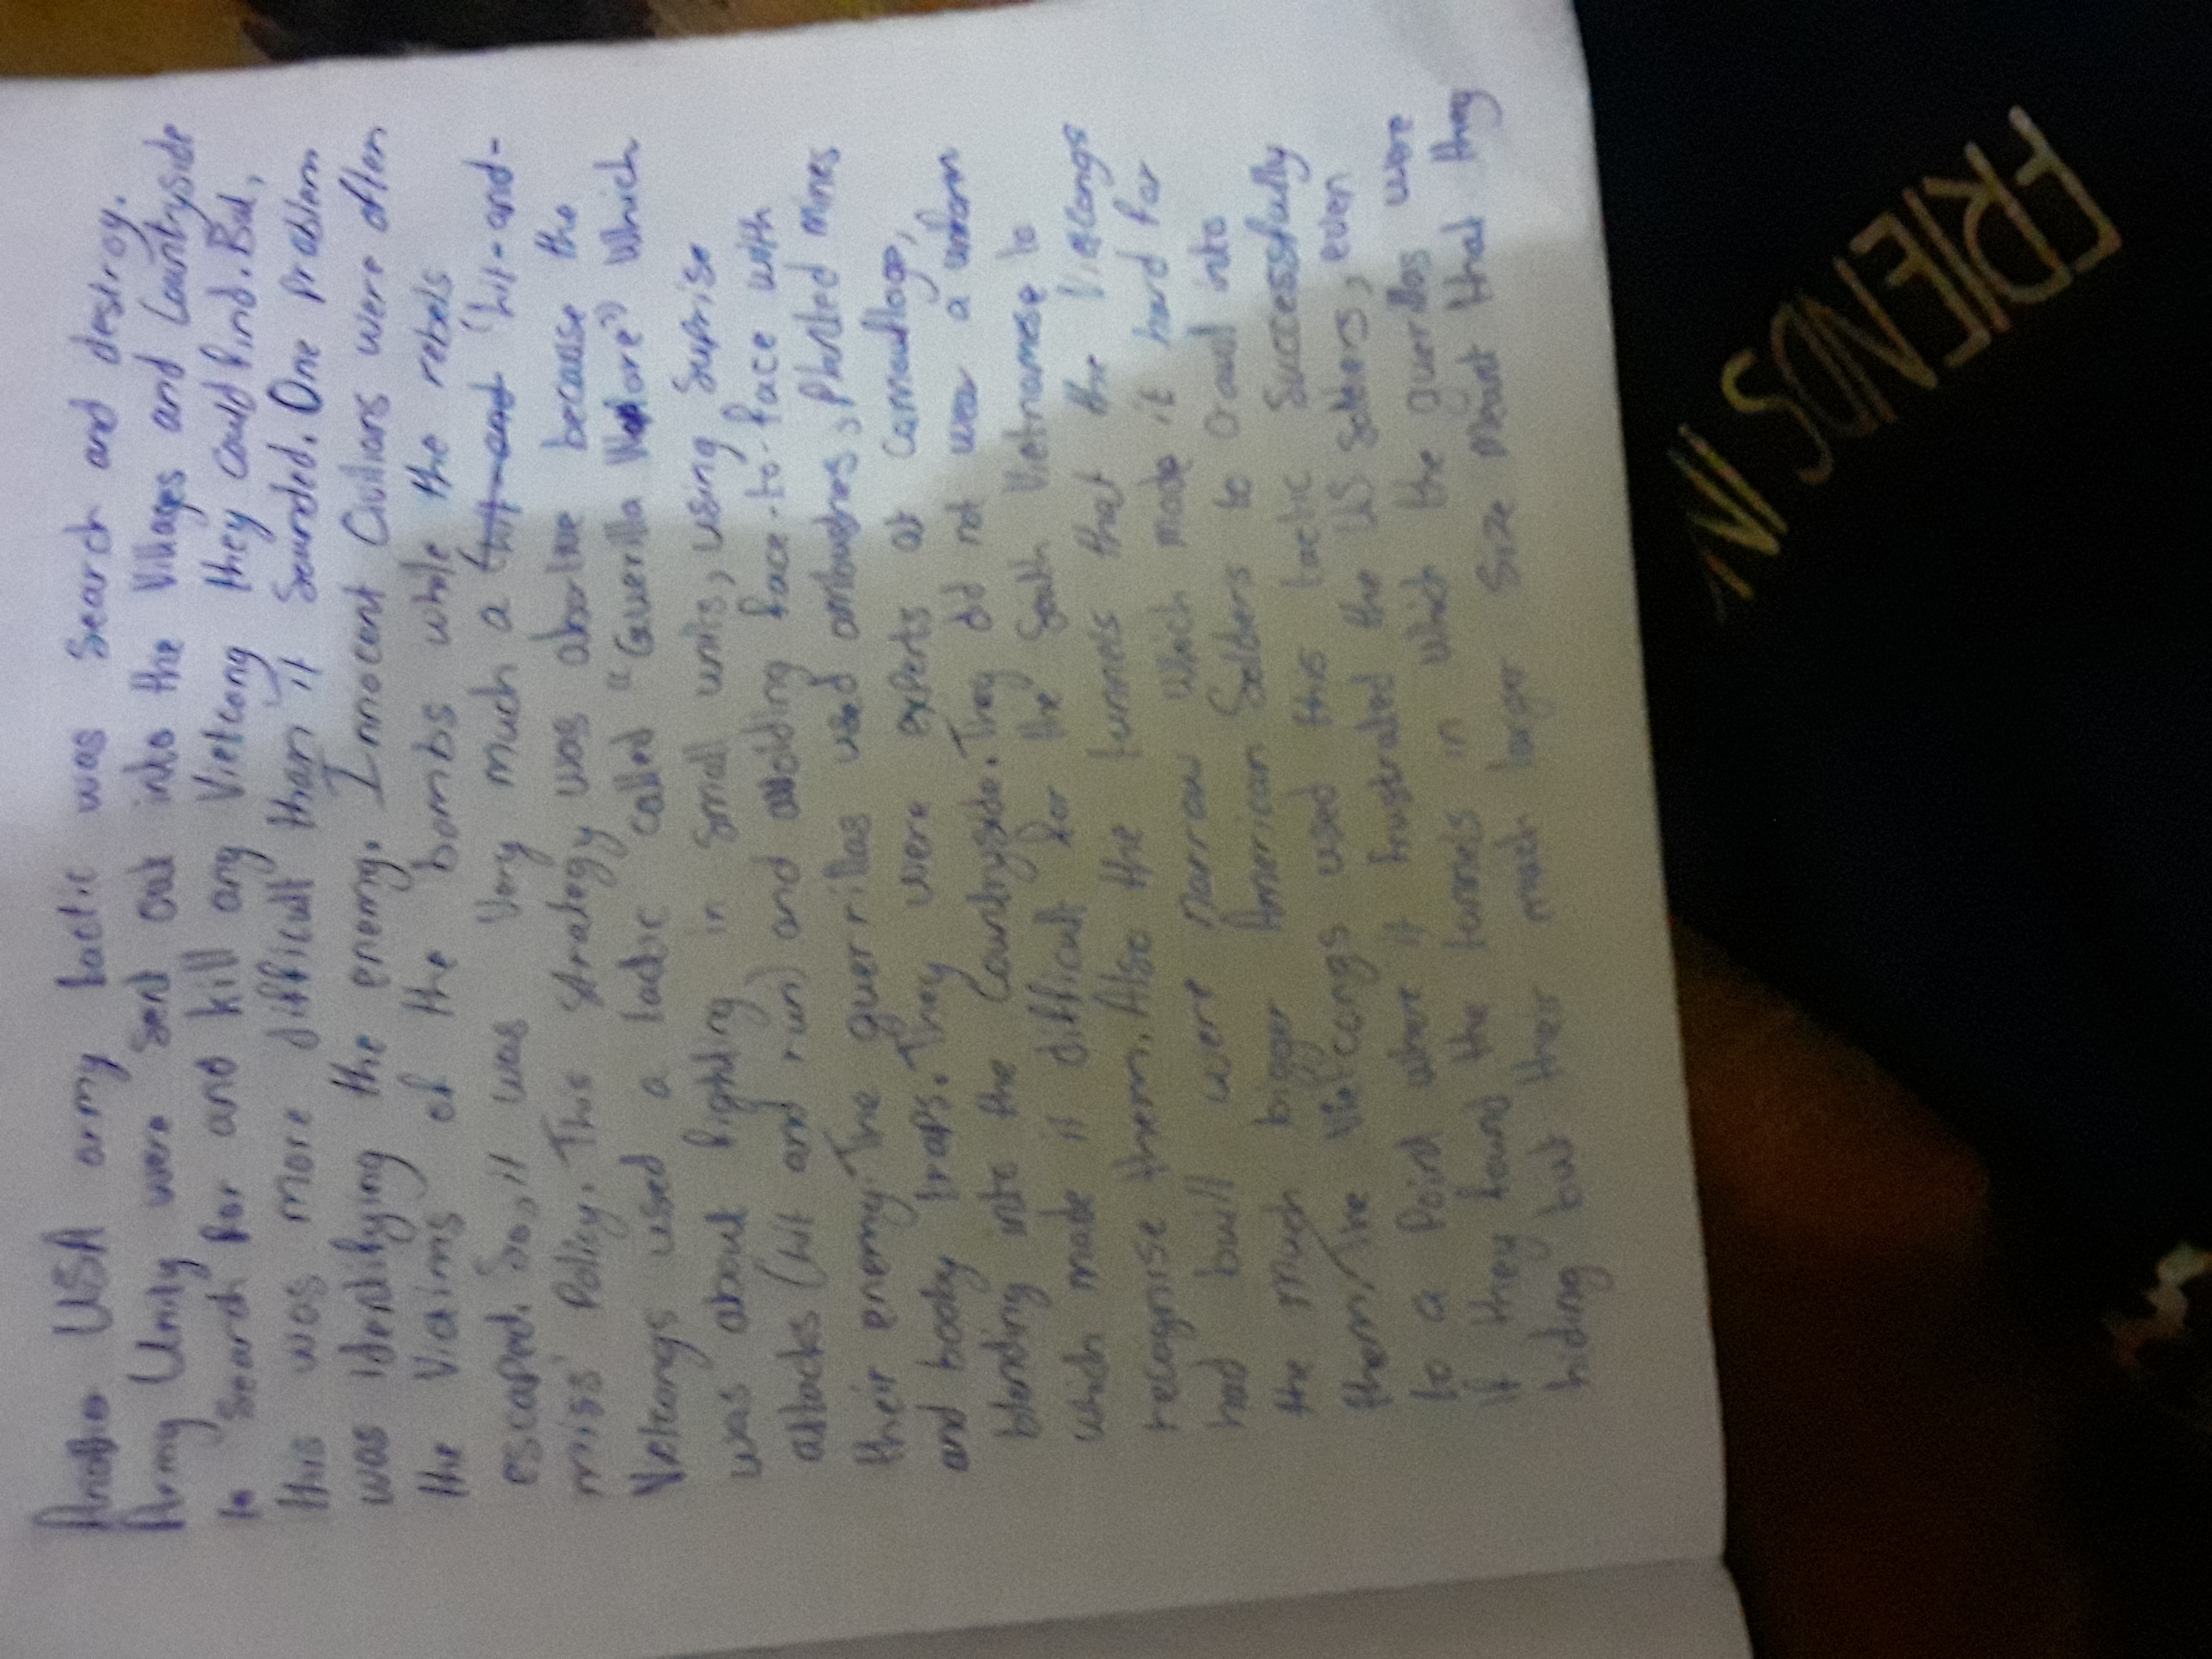 Another USA army tactic was Search and destroy.
Army Unity were sent out into the Villages and Countryside
to search for and kill any Vietcong they could find. But,
this was more difficult than it Sounded. One problem
was identifying the enemy. Innocent Civilians were often
the Victims of the bombs while the rebels
escaped. So, it was very much a 'hit-and-
miss' Policy. This strategy was abortive because the
Vietcongs used a tactic called "Guerilla Wafare" which
was about fighting in small units, using Suprise
attacks (hit and run) and avoiding face-to-face with
their enemy. The guerrillas used ambushes, Planted mines
and booby traps. They were experts at
blending into the Countryside. They did not wear a uniform
which made it difficult for the South Vietnamese to
recognise them. Also the tunnels that the Vietcongs
had built were narrow which made it hard for
the much bigger American Soldiers to crawl into
them. The Vietcongs used this tactic Successfully
to a Point where it frustrated the US soldiers, even
if they found the tunnels in which the guerillas were
hiding but their much larger Size meant that they
FRIENDS IN